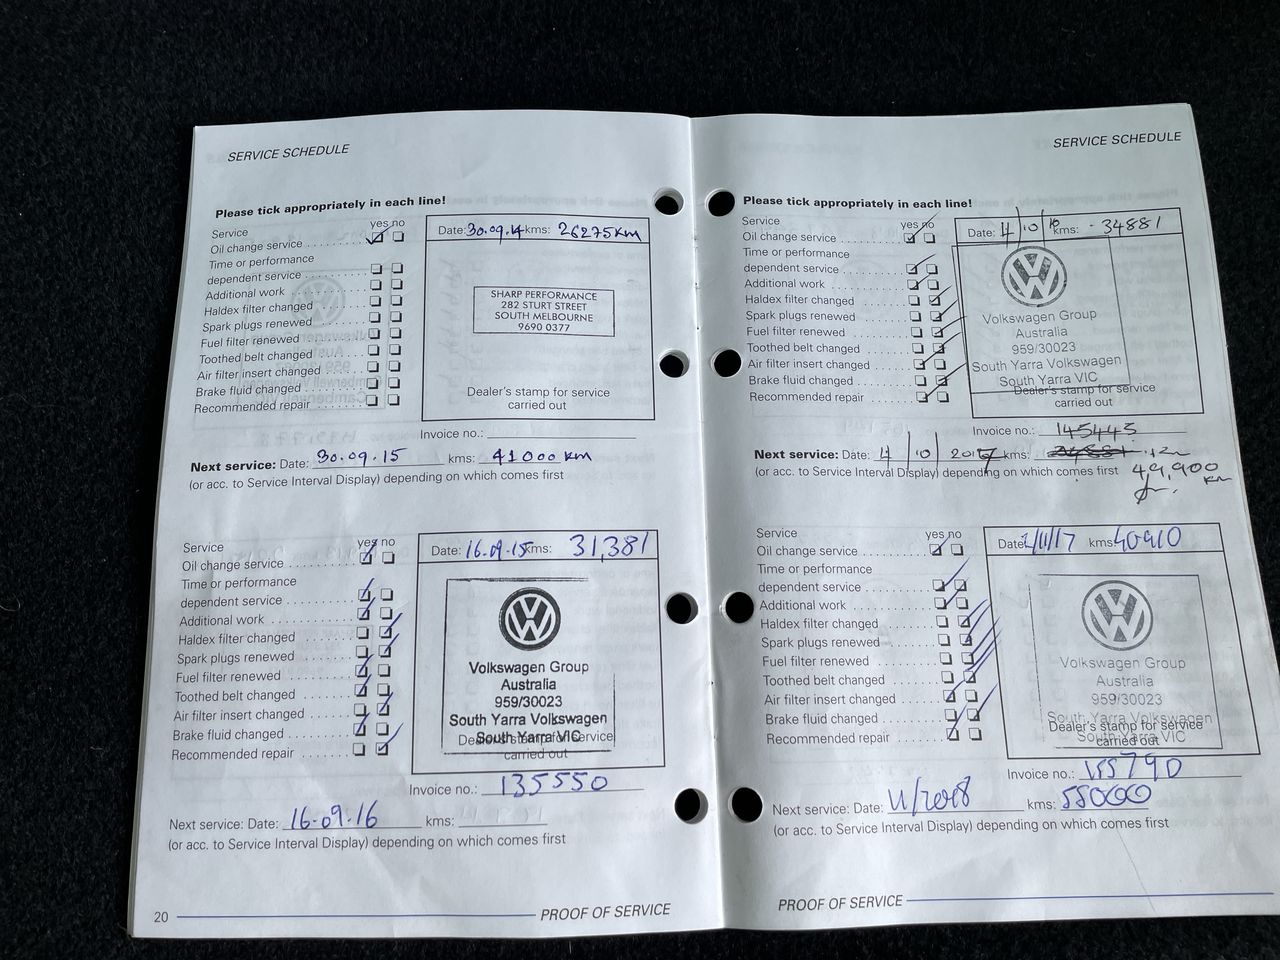 SERVICE SCHEDULE
Please tick appropriately in each line!
Service yes no
Oil change service
Time or performance
dependent service
Additional work
Haldex filter changed
Spark plugs renewed
Fuel filter renewed
Toothed belt changed
Air filter insert changed
Brake fluid changed
Recommended repair
Date: 30.09.14 kms: 26275KM
SHARP PERFORMANCE
282 STURT STREET
SOUTH MELBOURNE
9690 0377
Dealer's stamp for service
carried out
Invoice no.:
Next service: Date: 30.09.15 kms: 41000 KM
(or acc. to Service Interval Display) depending on which comes first
Service yes no
Oil change service
Time or performance
dependent service
Additional work
Haldex filter changed
Spark plugs renewed
Fuel filter renewed
Toothed belt changed
Air filter insert changed
Brake fluid changed
Recommended repair
Date: 16.09.15 kms: 31,381
Volkswagen Group
Australia
959/30023
South Yarra Volkswagen
South Yarra VIC
Dealer's stamp for service
carried out
Invoice no.: 135550
Next service: Date: 16.09.16 kms:
(or acc. to Service Interval Display) depending on which comes first
20 PROOF OF SERVICE
SERVICE SCHEDULE
Please tick appropriately in each line!
Service yes no
Oil change service
Time or performance
dependent service
Additional work
Haldex filter changed
Spark plugs renewed
Fuel filter renewed
Toothed belt changed
Air filter insert changed
Brake fluid changed
Recommended repair
Date: 4/10/ kms: 34881
Volkswagen Group
Australia
959/30023
South Yarra Volkswagen
South Yarra VIC
Dealer's stamp for service
carried out
Invoice no.: 145445
Next service: Date: 4/10/2017 kms:
(or acc. to Service Interval Display) depending on which comes first 49,900
KM
Service yes no
Oil change service
Time or performance
dependent service
Additional work
Haldex filter changed
Spark plugs renewed
Fuel filter renewed
Toothed belt changed
Air filter insert changed
Brake fluid changed
Recommended repair
Date: /11/17 kms: 40910
Volkswagen Group
Australia
959/30023
South Yarra Volkswagen
South Yarra VIC
Dealer's stamp for service
carried out
Invoice no.: 155790
Next service: Date: 11/2018 kms: 55000
(or acc. to Service Interval Display) depending on which comes first
PROOF OF SERVICE